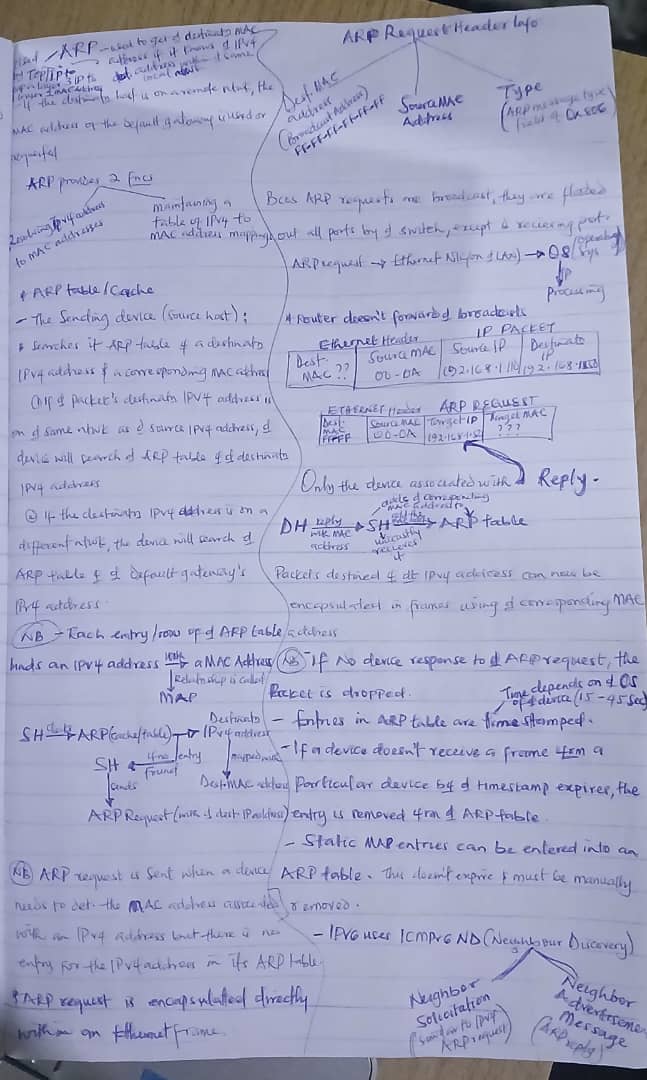 ARP - used to get d destinatn MAC
address if it knows d IPv4
address within d same
local
If the destinatn host is on a remote ntwk, the
MAC address of the Default gateway is used or
requested
ARP provides 2 Fncs
Resolving IPv4 address
to MAC addresses
Maintaining a
table of IPv4 to
MAC address mappings
* ARP table/Cache
- The Sending device (source host);
* Searches it ARP table 4 a destinatn
IPv4 address & a corresponding MAC address
(1) If d packet's destinatn IPv4 address is
on d same ntwk as d source IPv4 address, d
device will search d ARP table 4 d destinatn
IPv4 address
② If the destinatn IPv4 address is on a
different ntwk, the device will search d
ARP table 4 d Default gateway's
IPv4 address.
NB - Each entry/row of d ARP table
binds an IPv4 address with a MAC Address
Relationship is called
MAP
SH checks ARP(Cache/table) → Destinatn
IPv4 address
SH 4 no entry
found
sends
Dest. MAC address
ARP Request (with d dest. IP address)
NB ARP request is sent when a device
needs to det. the MAC address associated
with an IPv4 address but there is no
entry for the IPv4 address in its ARP table.
* ARP request is encapsulated directly
within an Ethernet Frame.
ARP Request Header Info
Dest. MAC
address
(Broadcast Address)
FF-FF-FF-FF-FF-FF
Source MAC
Address
Type
(ARP message type
field of 0x806
Bcos ARP requests are broadcast, they are flooded
out all ports by d switch, except d recieving port.
ARP request → Ethernet NIC(on d LAN) → OS (operating
sys
4
Processing
* Router doesn't forward d broadcasts
Ethernet Header
IP PACKET
Dest.
MAC ??
Source MAC
00-0A
Source IP
192.168.1.110
Destinatn
IP
ETHERNET Header
ARP REQUEST
Dest.
MAC
Source MAC
00-0A
Target IP
Target MAC
???
Only the device associated with d Reply.
adds d corresponding
MAC address to
DH reply
with MAC
address
SH
unicastly
recieves
it
ARP table
Packets destined 4 dt IPv4 address can now be
encapsulated in frames using d corresponding MAC
address
NB - If No device response to d ARP request, the
Packet is dropped.
Time depends on d OS
of d device (15-45 sec)
- Entries in ARP table are time stamped.
- If a device doesn't receive a frame 4rm a
particular device b4 d timestamp expires, the
entry is removed 4rm d ARP table.
- Static MAP entries can be entered into an
ARP table. This doesn't expire & must be manually
removed.
- IPV6 uses ICMPv6 ND (Neighbour Discovery)
Neighbor
Solicitation
(Similar to IPv4
ARP request)
Neighbor
Advertisement
Message
(ARP reply)